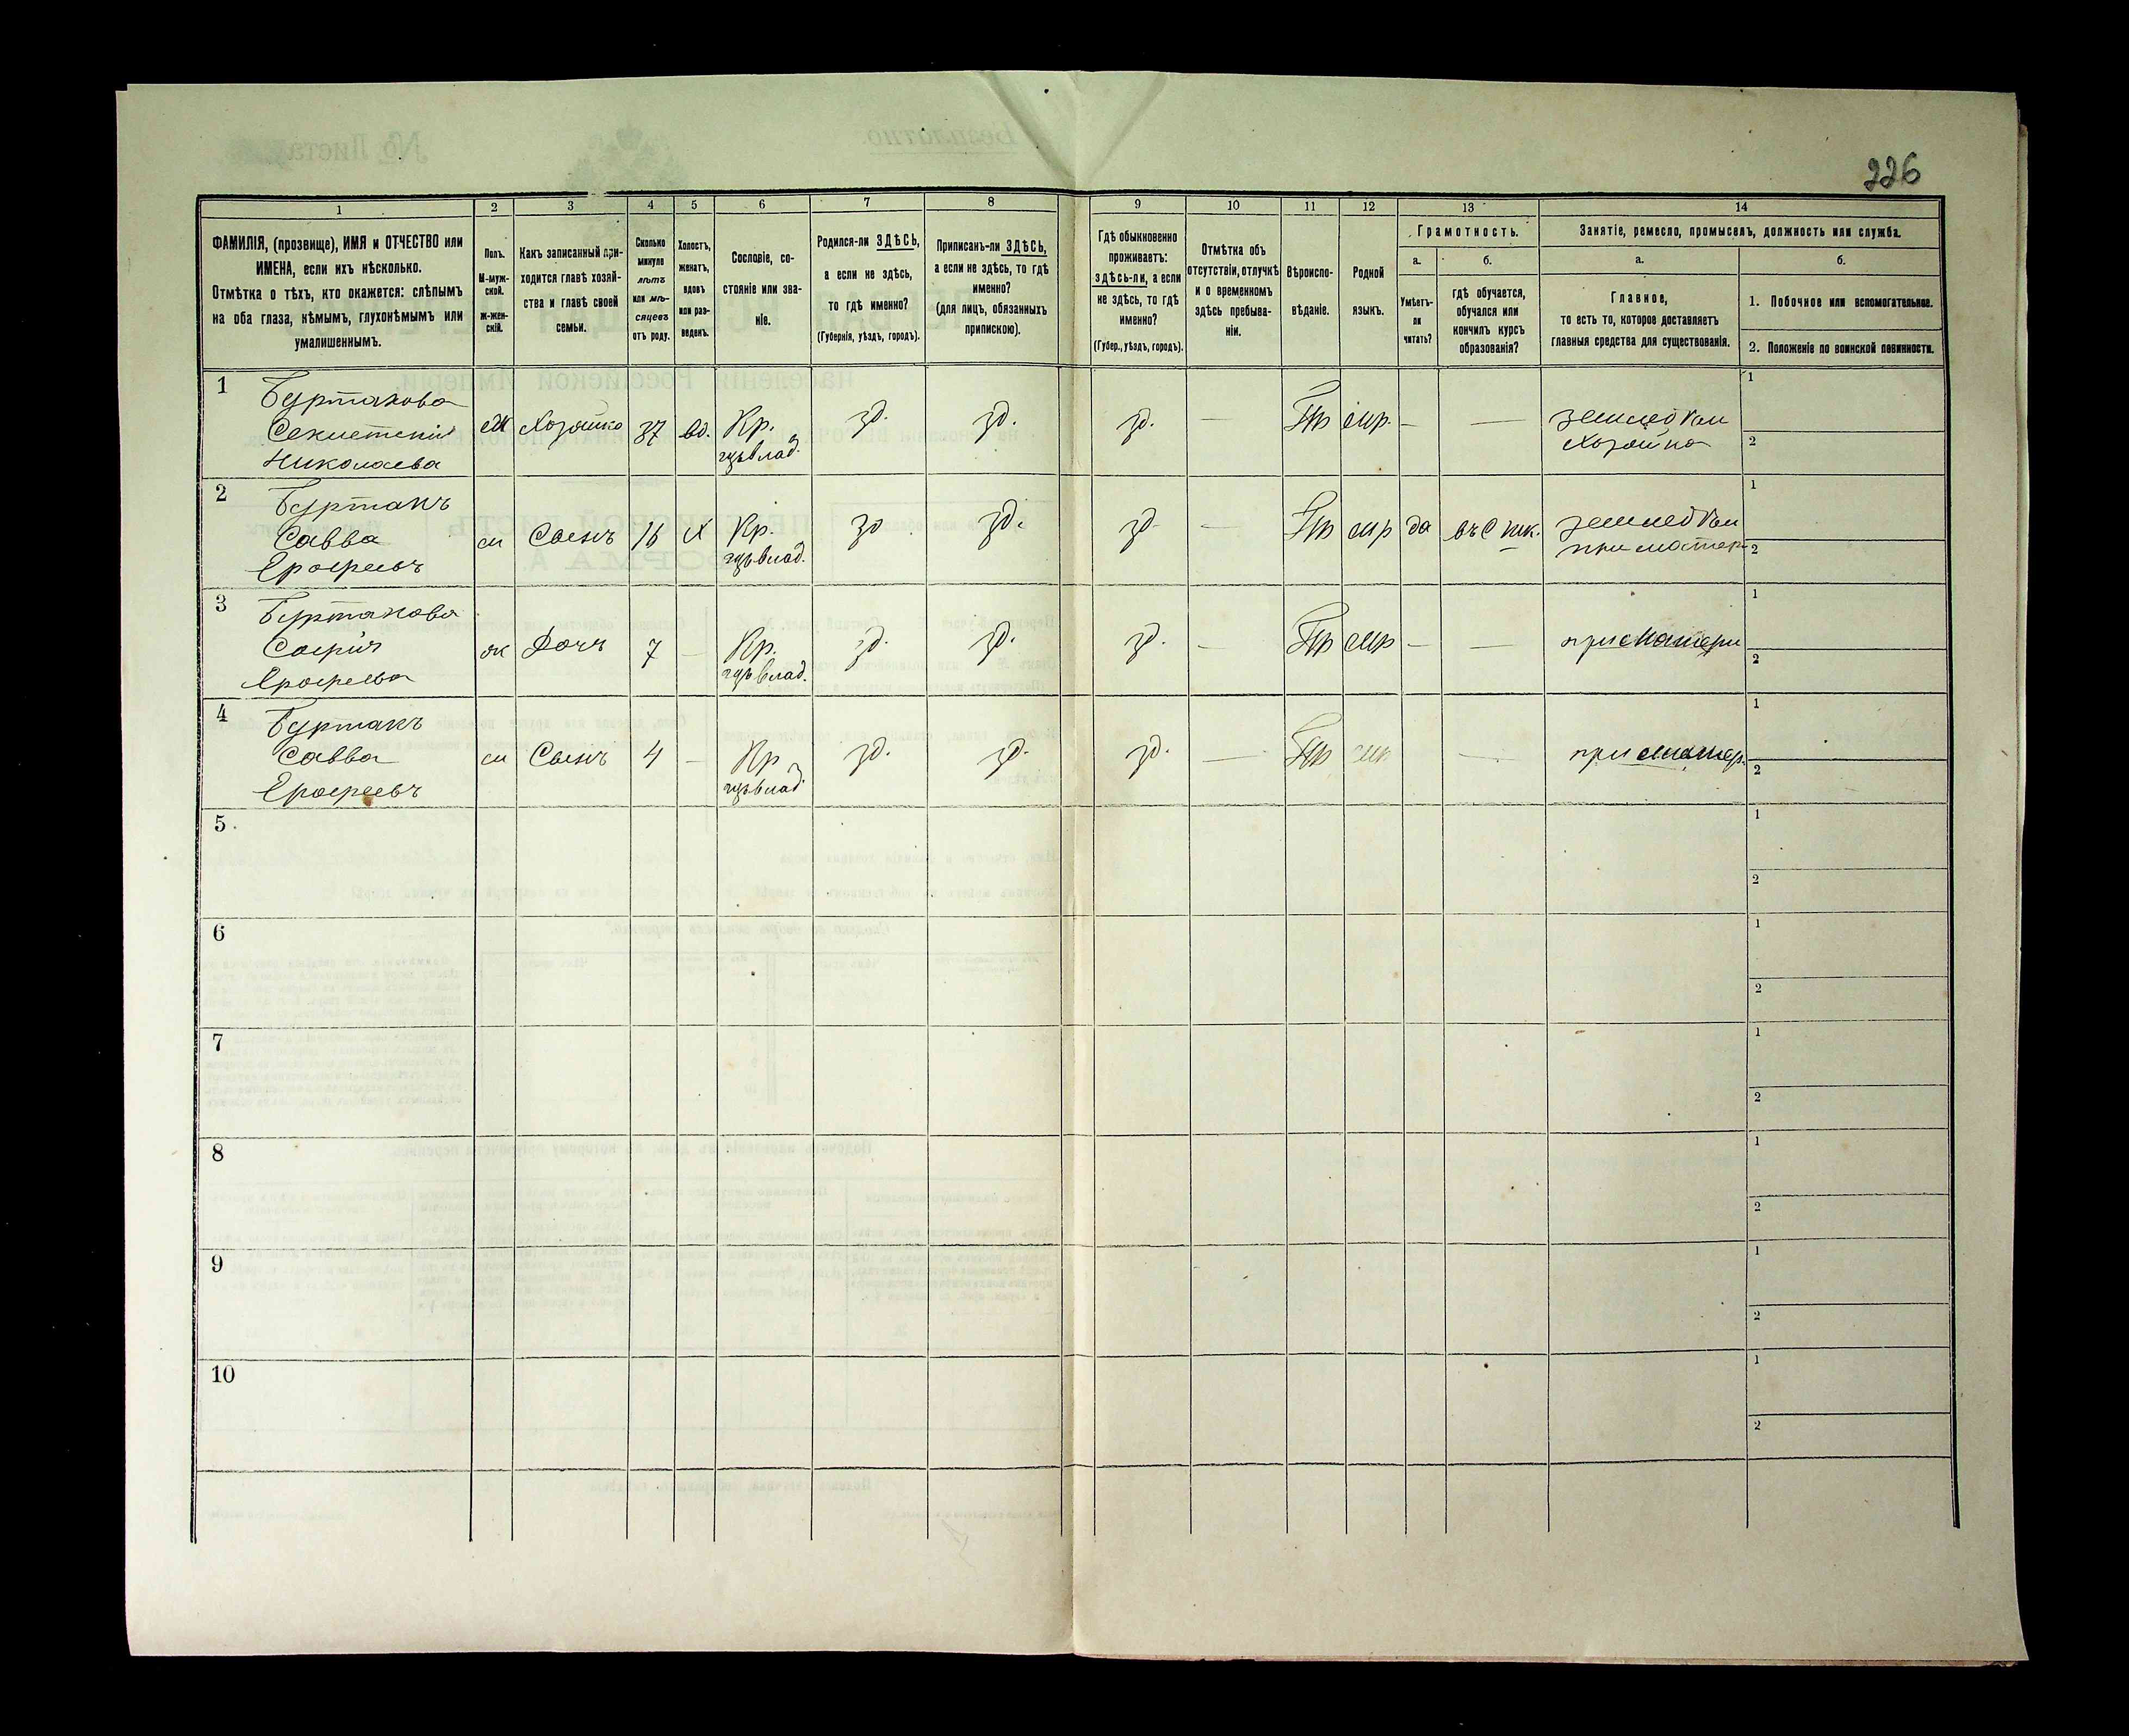 226
1
2
3
4
5
6
7
8
9
10
11
12
13
14
ФАМИЛІЯ, (прозвище), ИМЯ и ОТЧЕСТВО или
ИМЕНА, если ихъ нѣсколько.
Отмѣтка о тѣхъ, кто окажется: слѣпымъ
на оба глаза, нѣмымъ, глухонѣмымъ или
умалишеннымъ.
Полъ.
М-муж-
ской.
Ж-жен-
скій.
Какъ записанный при-
ходится главѣ хозяй-
ства и главѣ своей
семьи.
Сколько
минуло
лѣтъ
или мѣ-
сяцевъ
отъ роду.
Холостъ,
женатъ,
вдовъ
или раз-
веденъ.
Сословіе, со-
стояніе или зва-
ніе.
Родился-ли ЗДѢСЬ,
а если не здѣсь,
то гдѣ именно?
(Губернія, уѣздъ, городъ).
Приписанъ-ли ЗДѢСЬ,
а если не здѣсь, то гдѣ
именно?
(для лицъ, обязанныхъ
припискою).
Гдѣ обыкновенно
проживаетъ:
здѣсь-ли, а если
не здѣсь, то гдѣ
именно?
(Губер., уѣздъ, городъ).
Отмѣтка объ
отсутствіи, отлучкѣ
и о временномъ
здѣсь пребыва-
ніи.
Вѣроиспо-
вѣданіе.
Родной
языкъ.
Грамотность.
а.
Умѣетъ-
ли
читать?
б.
гдѣ обучается,
обучался или
кончилъ курсъ
образованія?
Занятіе, ремесло, промыселъ, должность или служба.
а.
Главное,
то есть то, которое доставляетъ
главныя средства для существованія.
б.
1. Побочное или вспомогательное.
2. Положеніе по воинской повинности.
1
Буртакова
Николаева
Хозяйка
37
вд.
Кр.
зд.
зд.
зд.
—
Пр
мр.
—
—
Хозяйка
1
2
2
Буртакъ
Савва
Ерофеевъ
м
Сынъ
16
Х
Кр.
зд
зд.
зд
—
Пр
мр
да
въ С шк.
при матер
1
2
3
Буртакова
Софія
Ерофеева
ж
Дочь
7
—
Кр.
зд.
зд.
зд.
—
Пр
мр
—
—
при матери
1
2
4
Буртакъ
Савва
Ерофеевъ
м
Сынъ
4
—
Кр
зд.
зд.
зд.
—
Пр
мр
—
при матер.
1
2
5
1
2
6
1
2
7
1
2
8
1
2
9
1
2
10
1
2